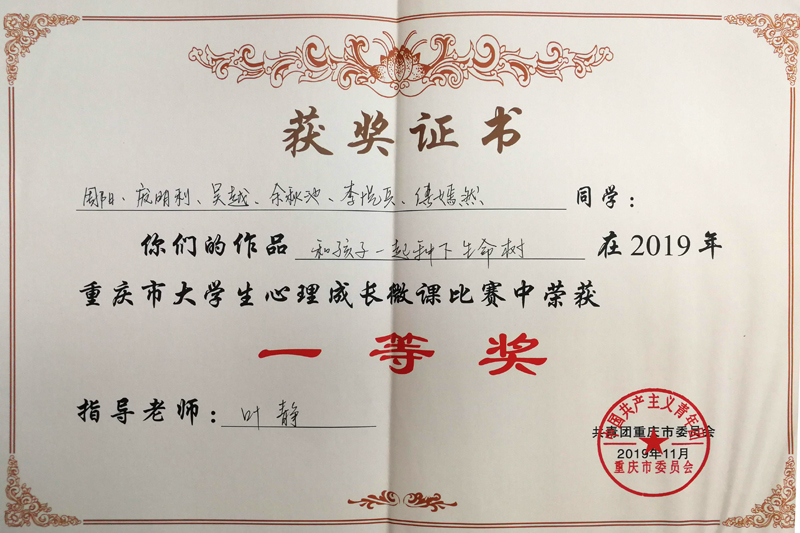 获奖证书
周阳、庞明利、吴越、余秋池、李悦兵、傅嫣然 同学：
你们的作品 和孩子一起种下生命树 在2019年
重庆市大学生心理成长微课比赛中荣获
一等奖
指导老师：叶静
中国共产主义青年团
共青团重庆市委员会
2019年11月
重庆市委员会